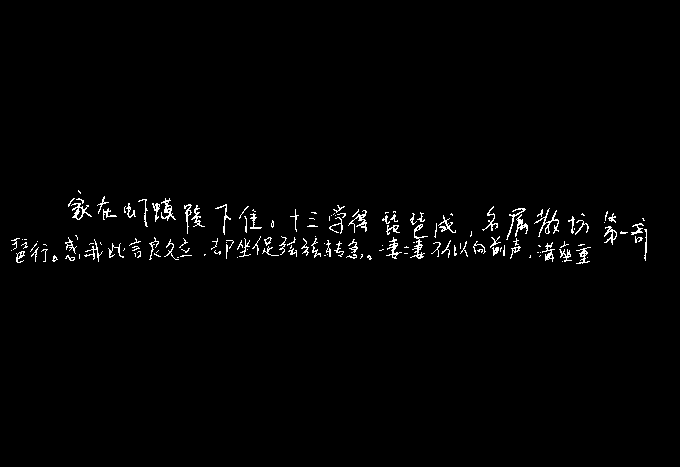 家在虾蟆陵下住。十三学得琵琶成，名属教坊第一部
琶行。感我此言良久立，却坐促弦弦转急。凄凄不似向前声，满座重